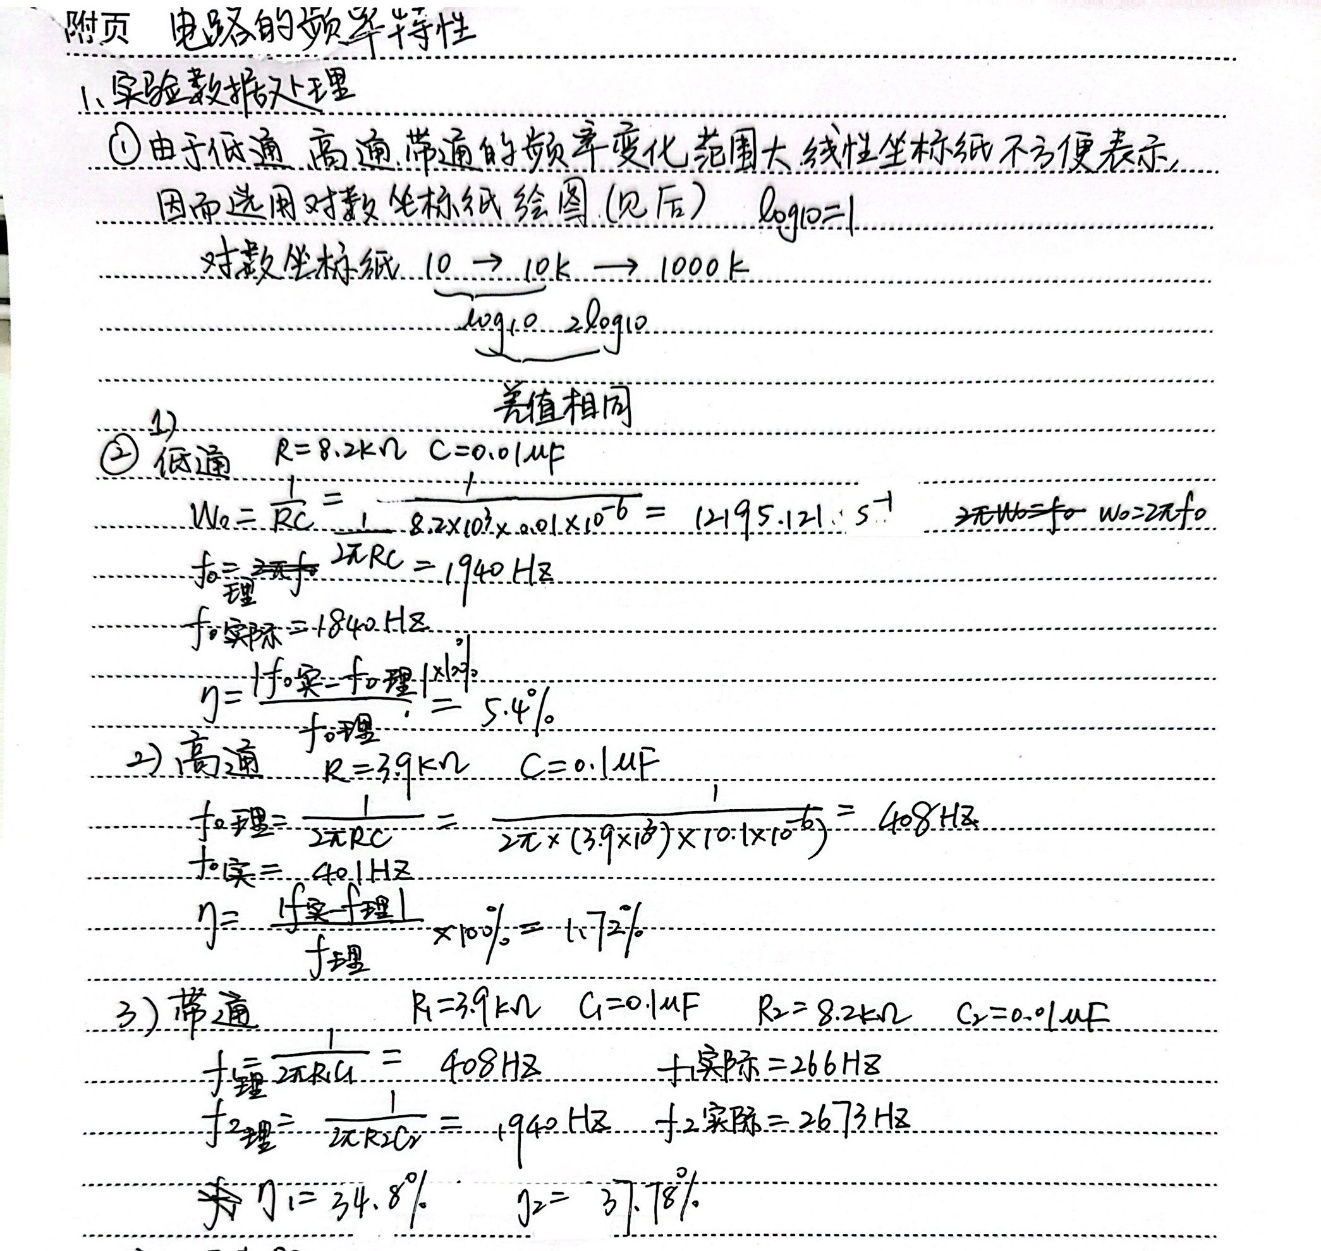 附页 电路的频率特性
1、实验数据处理
①由于低通、高通、带通的频率变化范围大,线性坐标纸不方便表示,
因而选用对数坐标纸绘图(见后) log10=1
对数坐标纸 10 → 10k → 1000k
log10 2log10
差值相同
② 1) 低通 R=8.2kΩ C=0.01μF
W₀= 1/RC = 1/(8.2×10³×0.01×10⁻⁶) = 12195.121 s⁻¹ 2πW₀=f₀ W₀=2πf₀
f₀理= 2πf₀ 1/2πRC = 1940Hz
f₀实际=1840Hz
η= |f₀实-f₀理|/f₀理 ×100% = 5.4%
2) 高通 R=3.9kΩ C=0.1μF
f₀理= 1/2πRC = 1/(2π×(3.9×10³)×(0.1×10⁻⁶)) = 408Hz
f₀实= 401Hz
η= |f实-f理|/f理 ×100% = 1.72%
3) 带通 R₁=3.9kΩ C₁=0.1μF R₂=8.2kΩ C₂=0.01μF
f₁理= 1/2πR₁C₁ = 408Hz f₁实际=266Hz
f₂理= 1/2πR₂C₂ = 1940Hz f₂实际=2673Hz
η₁= 34.8% η₂= 37.78%